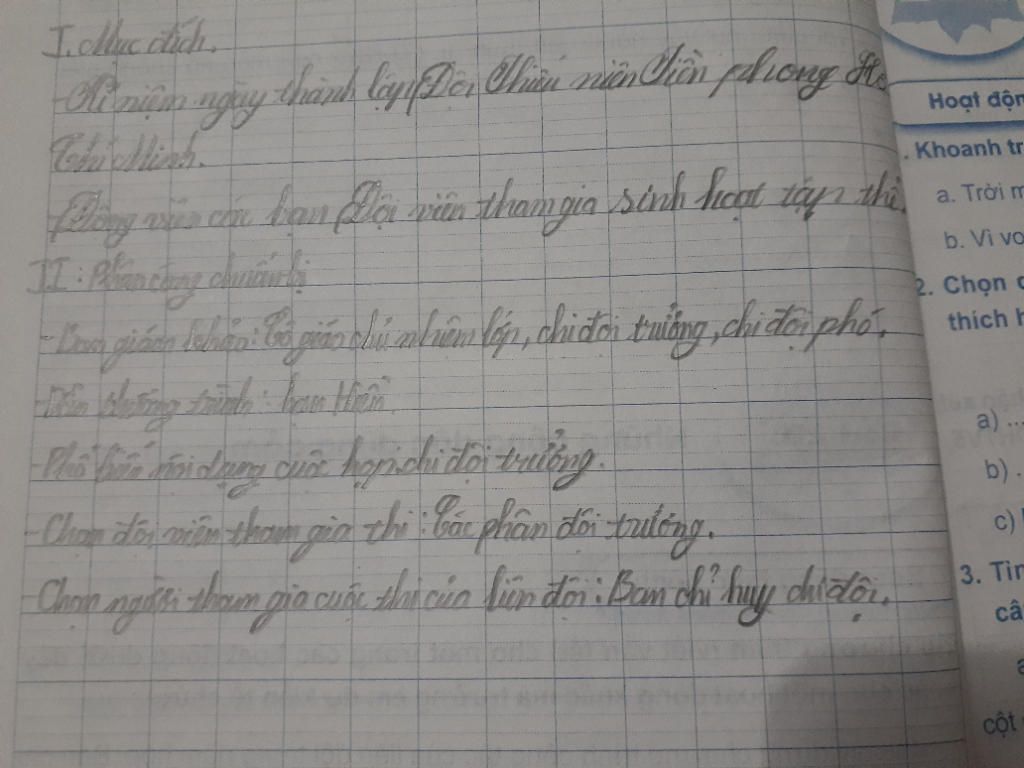 I. Mục đích.
-Kỉ niệm ngày thành lập Đội Thiếu niên Tiền phong Hồ
Chí Minh.
-Động viên các bạn Đội viên tham gia sinh hoạt tập thể.
II: Phân công chuẩn bị
-Ban giám khảo: Cô giáo chủ nhiệm lớp, chi đội trưởng, chi đội phó.
-Dẫn chương trình: bạn Hiền.
-Phổ biến nội dung cuộc họp: chi đội trưởng.
-Chọn đội viên tham gia thi: Các phân đội trưởng.
-Chọn người tham gia cuộc thi của liên đội: Ban chỉ huy chi đội.
Hoạt độn
. Khoanh tr
a. Trời m
b. Vì vo
2. Chọn c
thích h
a) ...
b) .
c)
3. Tìn
câ
a
cột